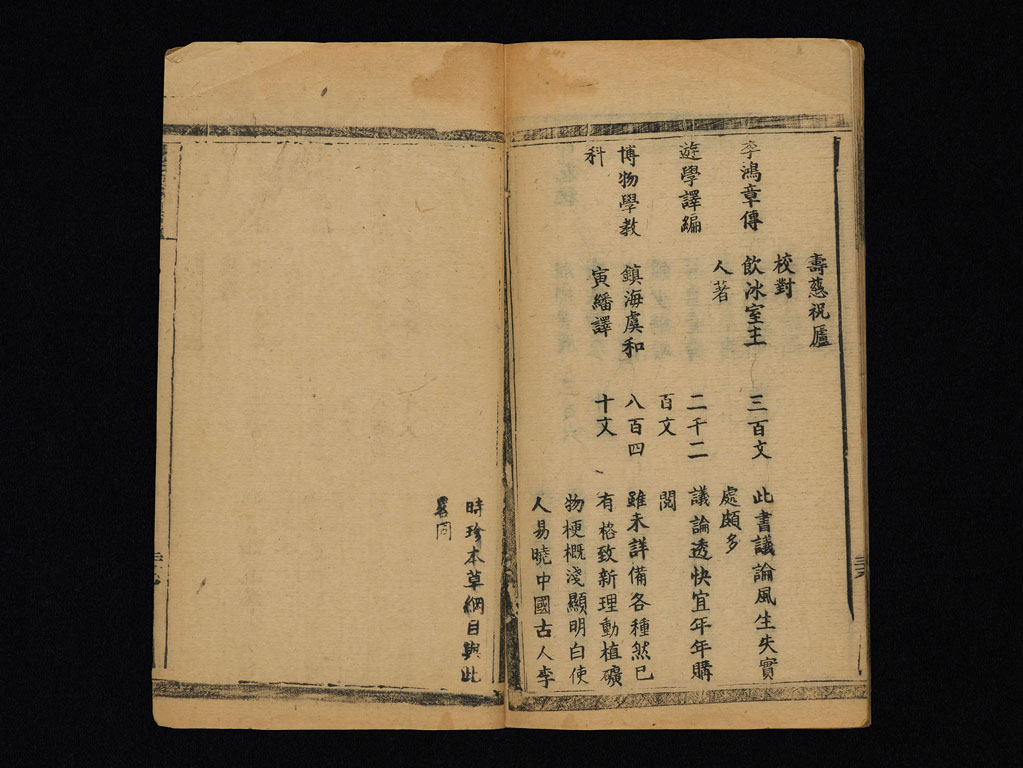 壽慈祝廬
校對
李鴻章傳
飲冰室主
人著
三百文
此書議論風生失實
處頗多
遊學譯編
二千二
百文
議論透快宜年年購
閱
博物學教
科
鎮海虞和
寅繙譯
八百四
十文
雖未詳備各種然已
有格致新理動植礦
物梗概淺顯明白使
人易曉中國古人李
時珍本草綱目與此
畧同